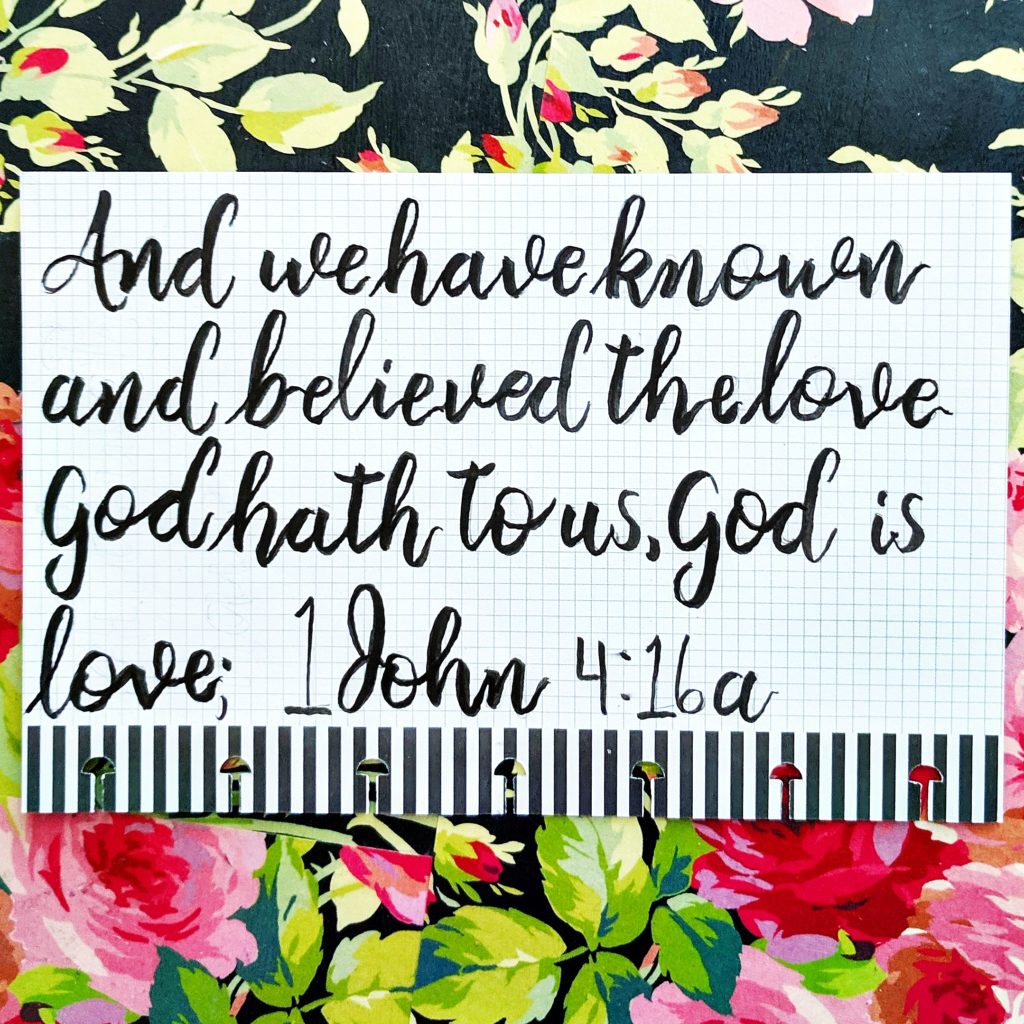 And we have known
and believed the love
God hath to us, God is
love; 1 John 4:16a